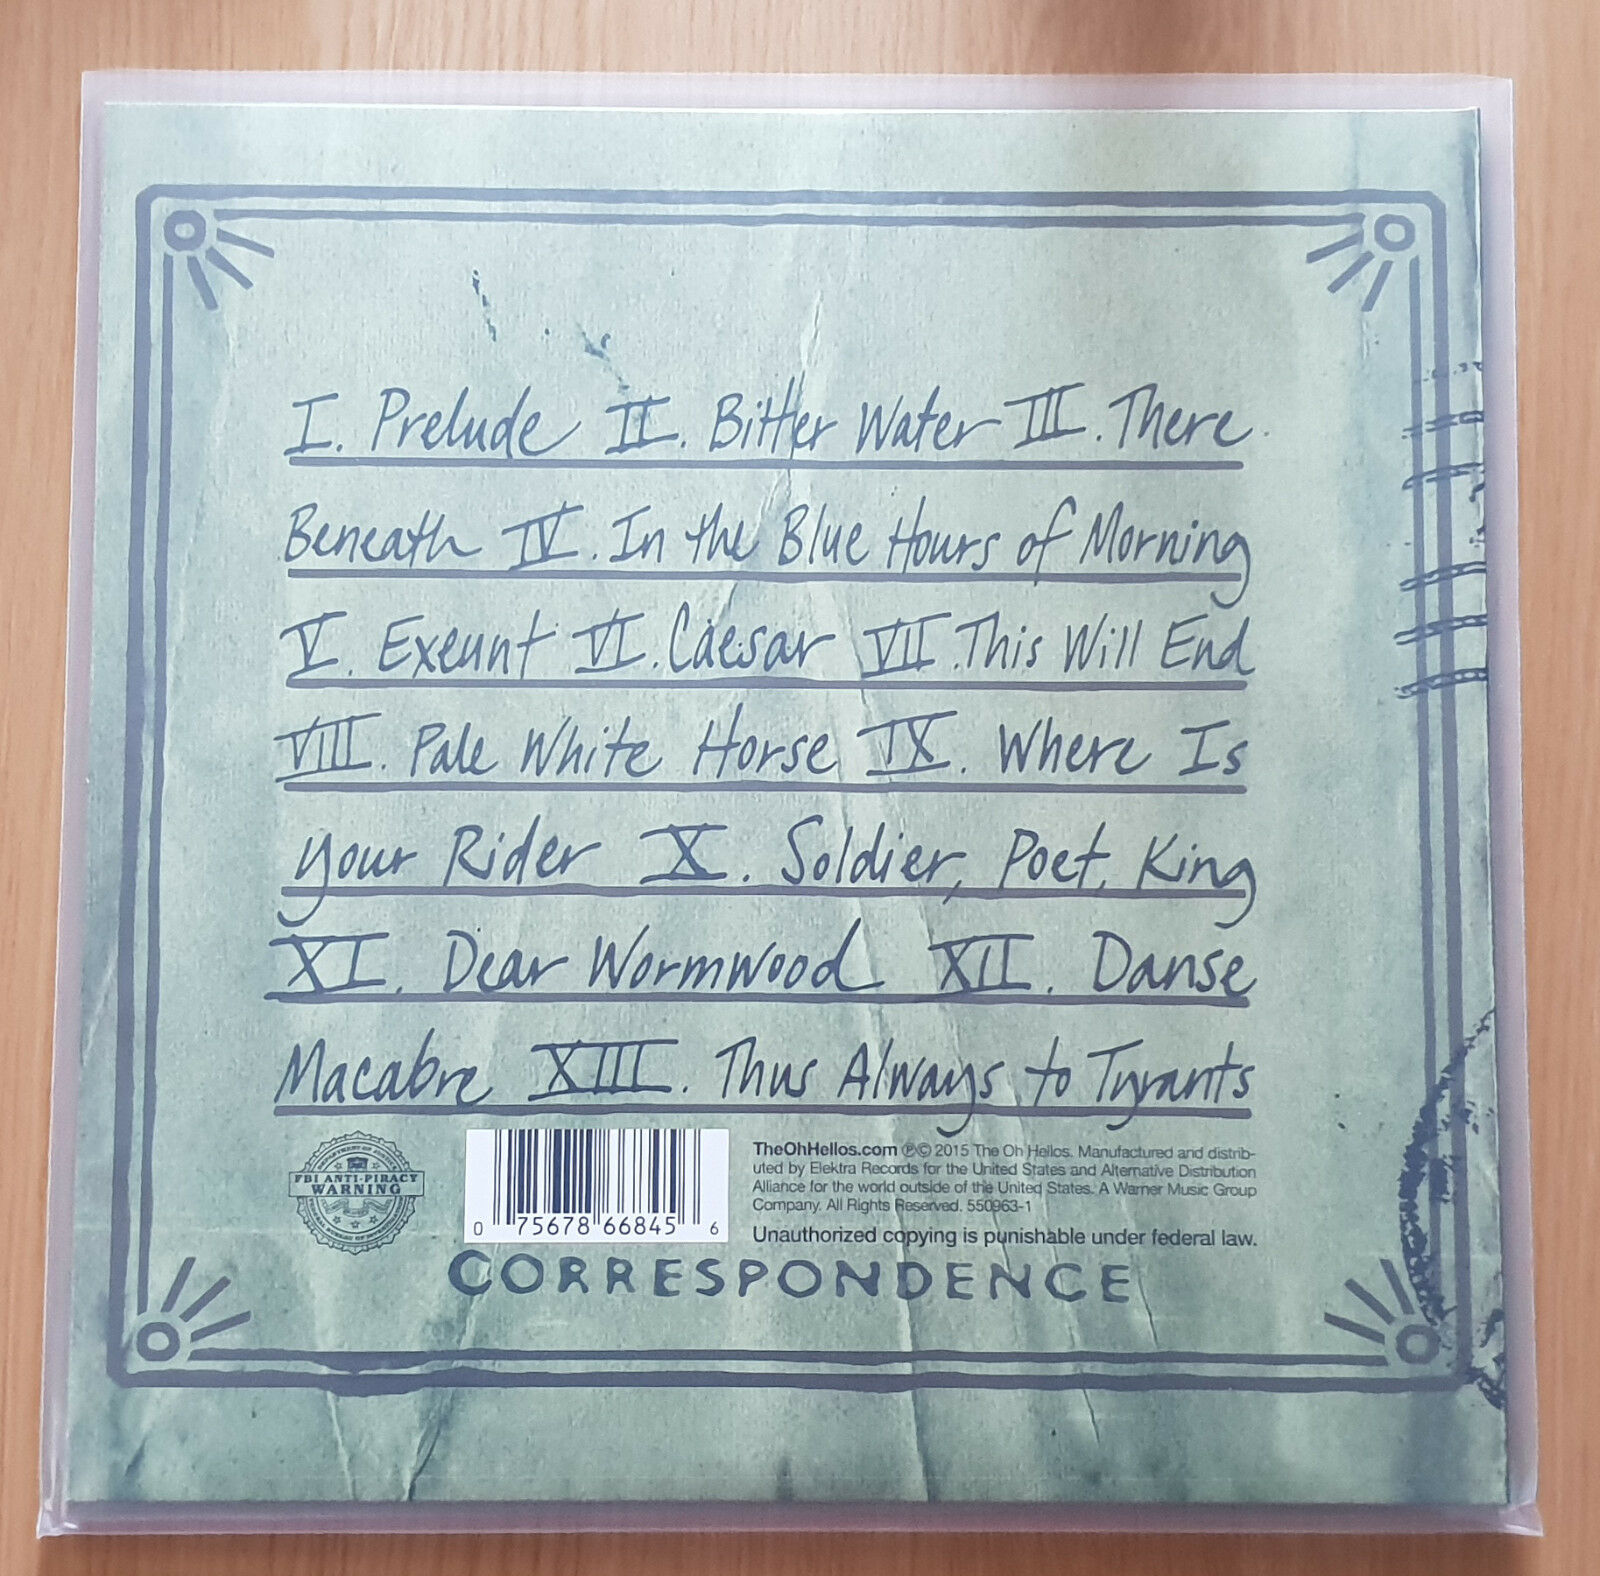 I. Prelude II. Bitter Water III. There
Beneath IV. In the Blue Hours of Morning
V. Exeunt VI. Caesar VII. This Will End
VIII. Pale White Horse IX. Where Is
your Rider X. Soldier, Poet, King
XI. Dear Wormwood XII. Danse
Macabre XIII. Thus Always to Tyrants
FBI ANTI-PIRACY
WARNING
0 75678 66845 6
TheOhHellos.com ℗© 2015 The Oh Hellos. Manufactured and distrib-
uted by Elektra Records for the United States and Alternative Distribution
Alliance for the world outside of the United States. A Warner Music Group
Company. All Rights Reserved. 550963-1
Unauthorized copying is punishable under federal law.
CORRESPONDENCE